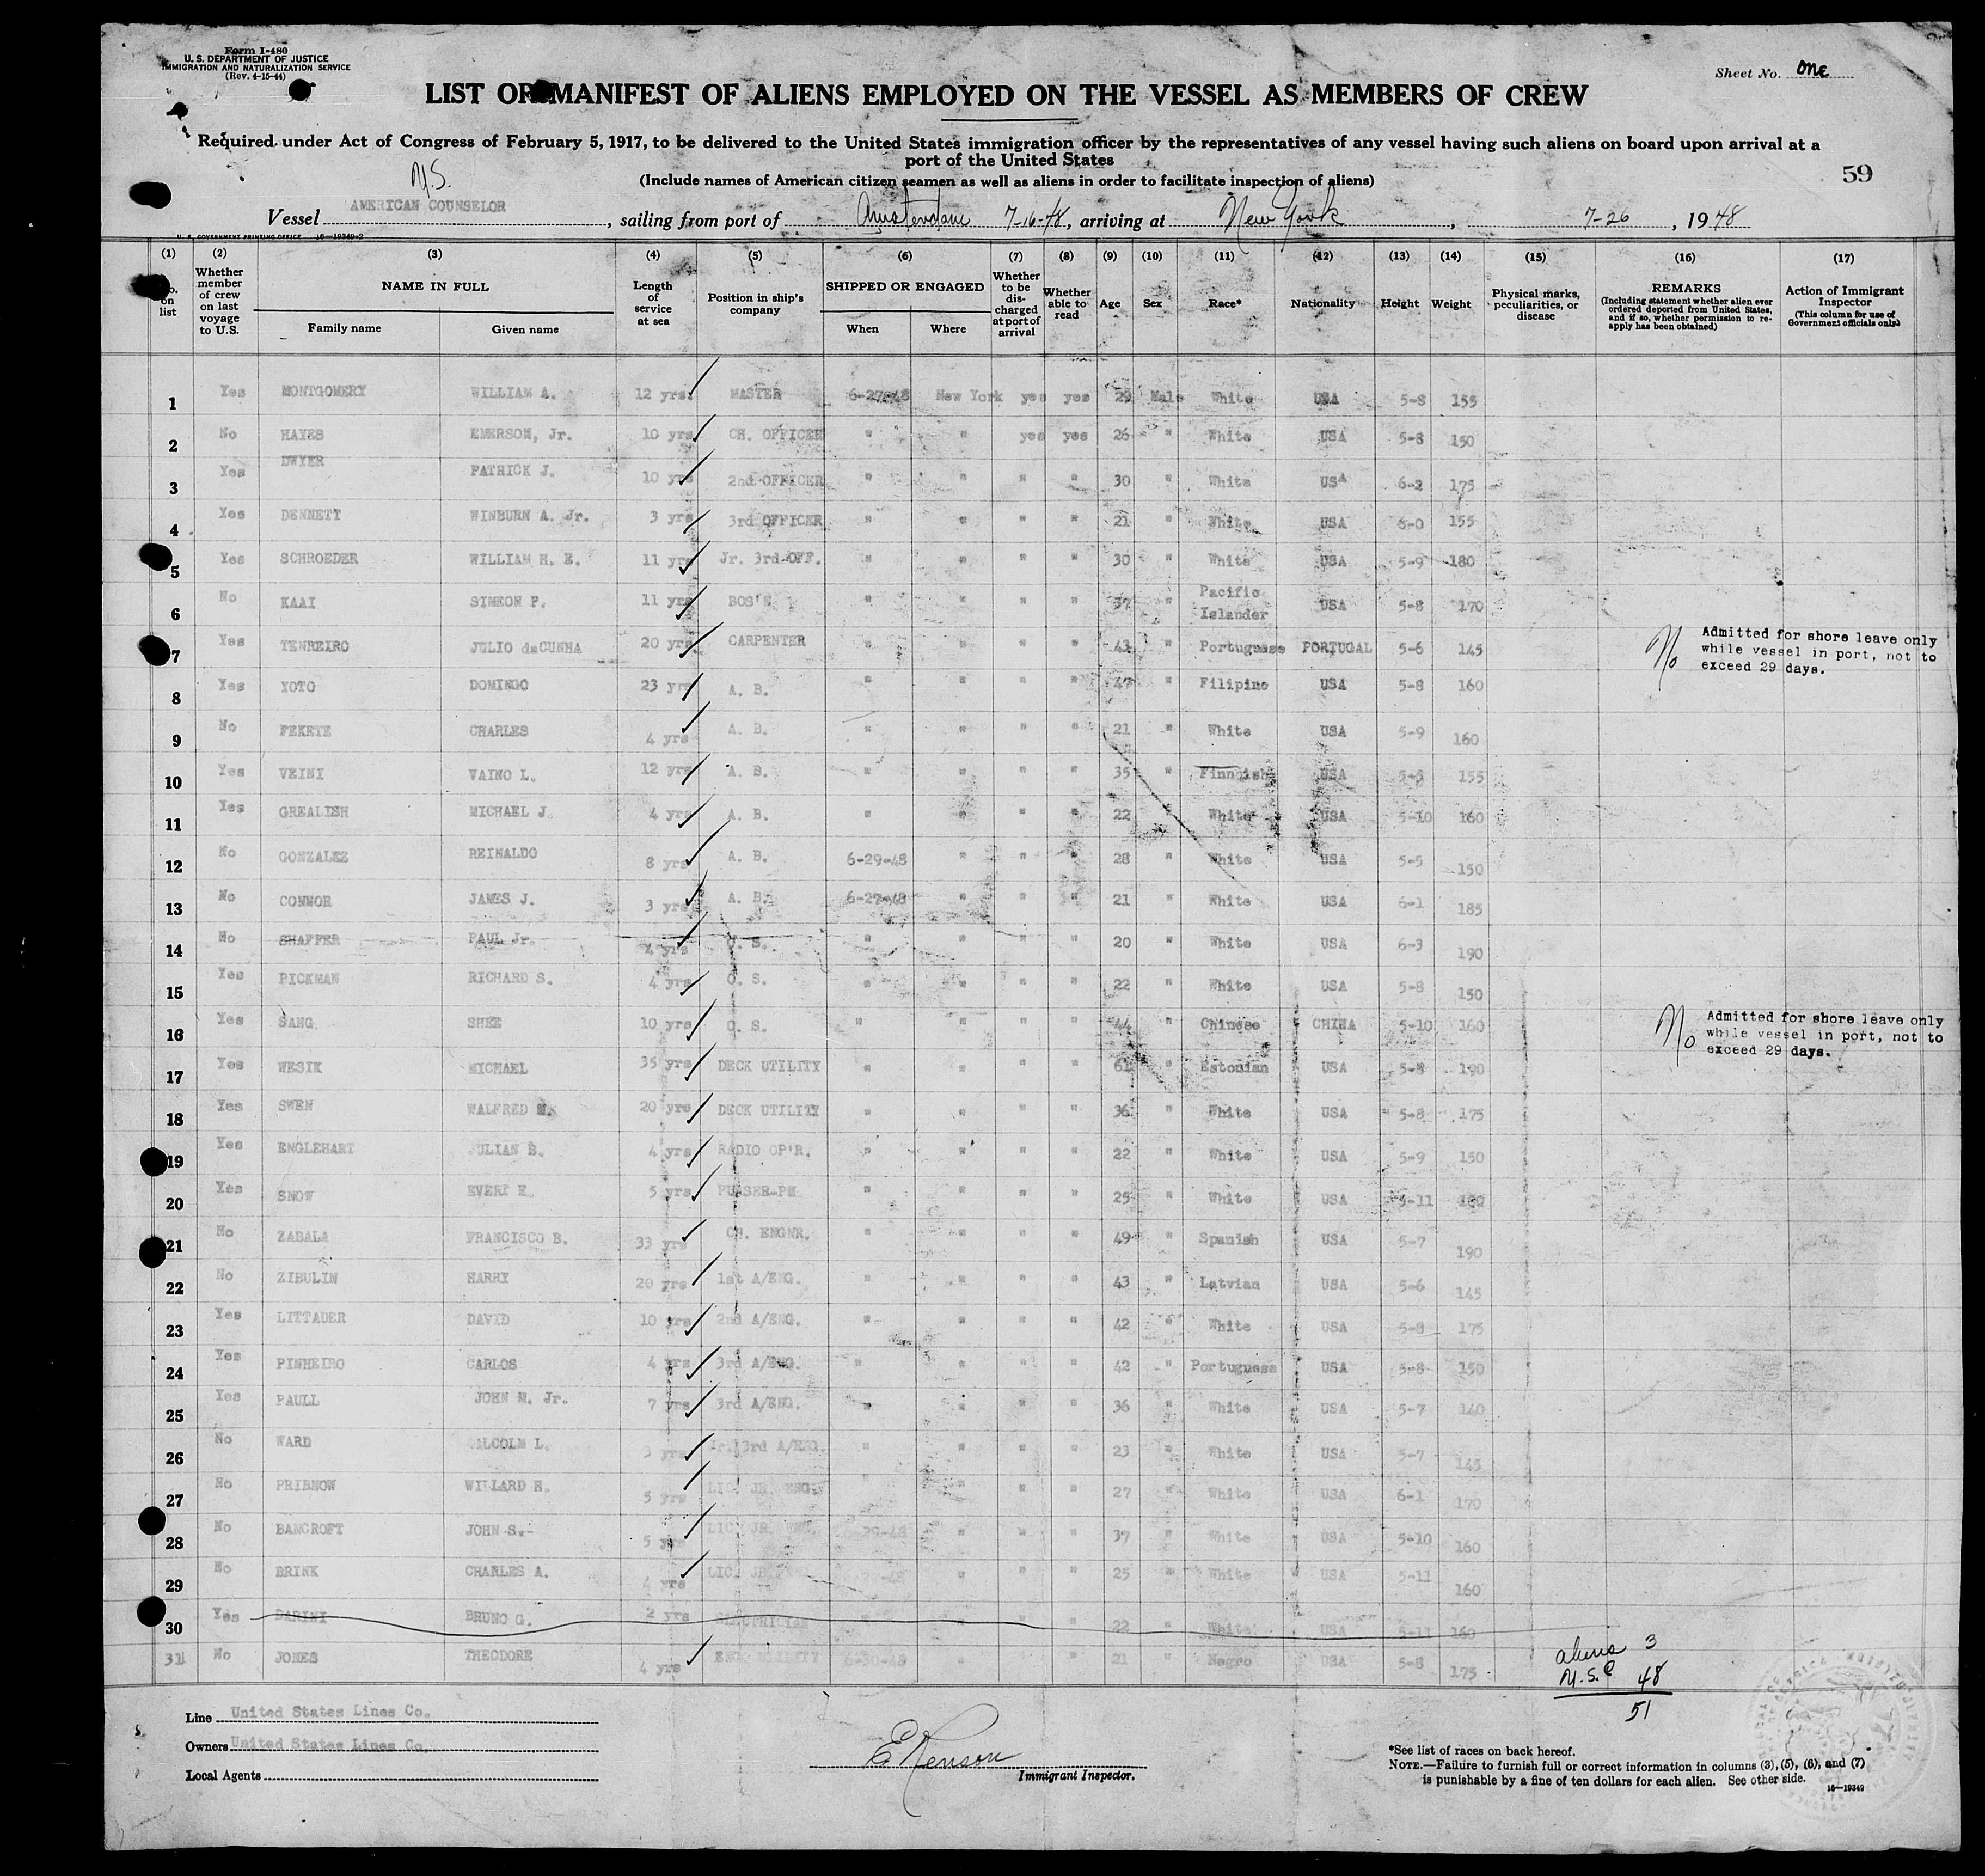 Form I-480
U. S. DEPARTMENT OF JUSTICE
IMMIGRATION AND NATURALIZATION SERVICE
(Rev. 4-15-44)
Sheet No. One
LIST OR MANIFEST OF ALIENS EMPLOYED ON THE VESSEL AS MEMBERS OF CREW
Required under Act of Congress of February 5, 1917, to be delivered to the United States immigration officer by the representatives of any vessel having such aliens on board upon arrival at a
port of the United States
(Include names of American citizen seamen as well as aliens in order to facilitate inspection of aliens)
59
Vessel AMERICAN COUNSELOR, sailing from port of Amsterdam 7-16-48, arriving at New York, 7-26, 1948
U. S. GOVERNMENT PRINTING OFFICE 16-19349-2
(1) (2) (3) (4) (5) (6) (7) (8) (9) (10) (11) (12) (13) (14) (15) (16) (17)
No. on list
Whether member of crew on last voyage to U.S.
NAME IN FULL
Family name Given name
Length of service at sea
Position in ship's company
SHIPPED OR ENGAGED
When Where
Whether to be discharged at port of arrival
Whether able to read
Age Sex Race* Nationality Height Weight
Physical marks, peculiarities, or disease
REMARKS
(Including statement whether alien ever ordered deported from United States, and if so, whether permission to reapply has been obtained)
Action of Immigrant Inspector
(This column for use of Government officials only)
1 Yes MONTGOMERY WILLIAM A. 12 yrs. MASTER 6-27-48 New York yes yes 29 Male White USA 5-8 155
2 No HAYES EMERSON, Jr. 10 yrs CH. OFFICER " " yes yes 26 " White USA 5-8 150
3 Yes DWYER PATRICK J. 10 yrs 2nd OFFICER " " " " 30 " White USA 6-2 175
4 Yes DENNETT WINBURN A. Jr. 3 yrs 3rd OFFICER " " " " 21 " White USA 6-0 155
5 Yes SCHROEDER WILLIAM H. E. 11 yrs Jr. 3rd OFF. " " " " 30 " White USA 5-9 180
6 No KAAI SIMEON P. 11 yrs BOS'N " " " " 37 " Pacific Islander USA 5-8 170
7 Yes TENREIRO JULIO daCUNHA 20 yrs CARPENTER " " " " 43 " Portuguese PORTUGAL 5-6 145 No Admitted for shore leave only
while vessel in port, not to
exceed 29 days.
8 Yes YOTO DOMINGO 23 yrs A. B. " " " " 47 " Filipino USA 5-8 160
9 No FEKETE CHARLES 4 yrs A. B. " " " " 21 " White USA 5-9 160
10 Yes VEINI VAINO L. 12 yrs A. B. " " " " 35 " Finnish USA 5-8 155
11 Yes GREALISH MICHAEL J. 4 yrs A. B. " " " " 22 " White USA 5-10 160
12 No GONZALEZ REINALDO 8 yrs A. B. 6-29-48 " " " 28 " White USA 5-5 150
13 No CONNOR JAMES J. 3 yrs A. B. 6-27-48 " " " 21 " White USA 6-1 185
14 No SHAFFER PAUL Jr. 4 yrs O. S. " " " " 20 " White USA 6-3 190
15 Yes PICKMAN RICHARD S. 4 yrs O. S. " " " " 22 " White USA 5-8 150
16 Yes SANG SHEE 10 yrs O. S. " " " " 44 " Chinese CHINA 5-10 160 No Admitted for shore leave only
while vessel in port, not to
exceed 29 days.
17 Yes WESIK MICHAEL 35 yrs DECK UTILITY " " " " 61 " Estonian USA 5-8 190
18 Yes SWEN WALFRED M. 20 yrs DECK UTILITY " " " " 36 " White USA 5-8 175
19 Yes ENGLEHART JULIAN B. 4 yrs RADIO OP'R. " " " " 22 " White USA 5-9 150
20 Yes SNOW EVERT E. 5 yrs PURSER-PM " " " " 25 " White USA 5-11
21 No ZABALA FRANCISCO B. 33 yrs CH. ENGNR. " " " " 49 " Spanish USA 5-7 190
22 No ZIBULIN HARRY 20 yrs 1st A/ENG. " " " " 43 " Latvian USA 5-6 145
23 Yes LITTAUER DAVID 10 yrs 2nd A/ENG. " " " " 42 " White USA 5-8 175
24 Yes PINHEIRO CARLOS 4 yrs 3rd A/ENG. " " " " 42 " Portuguese USA 5-8 150
25 Yes PAULL JOHN M. Jr. 7 yrs 3rd A/ENG. " " " " 36 " White USA 5-7 140
26 No WARD MALCOLM L. 3 yrs Jr. 3rd A/ENG. " " " " 23 " White USA 5-7 145
27 No PRIBNOW WILLARD H. 5 yrs LIC. JR. ENG. " " " " 27 " White USA 6-1 170
28 No BANCROFT JOHN S. 5 yrs LIC. JR. 29-48 " " " 37 " White USA 5-10 160
29 No BRINK CHARLES A. 4 yrs LIC. JR. " " " 25 " White USA 5-11 160
30 Yes DARINI BRUNO G. 2 yrs ELECTRICIAN " " 22 " White USA 5-11 160
31 No JONES THEODORE 4 yrs ENG. UTILITY 6-30-48 " " " 21 " Negro USA 5-8 175
aliens 3
U.S.C 48
51
Line United States Lines Co.
Owners United States Lines Co.
Local Agents
Immigrant Inspector.
*See list of races on back hereof.
NOTE.—Failure to furnish full or correct information in columns (3), (5), (6), and (7)
is punishable by a fine of ten dollars for each alien. See other side.
16-19349